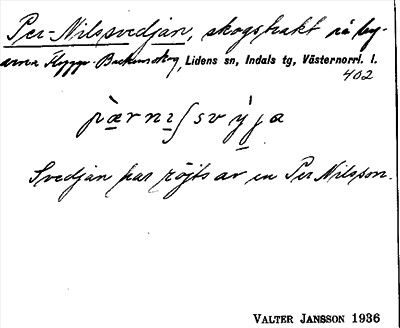 Per-Nilssvedjan, skogstrakt på by-
arna Flygge- Backen skog, Lidens sn, Indals tg, Västernorrl. l.
402
pὰrnɪʃsvy̠̓ja
Svedjan har röjts av en Per Nilsson.
VALTER JANSSON 1936